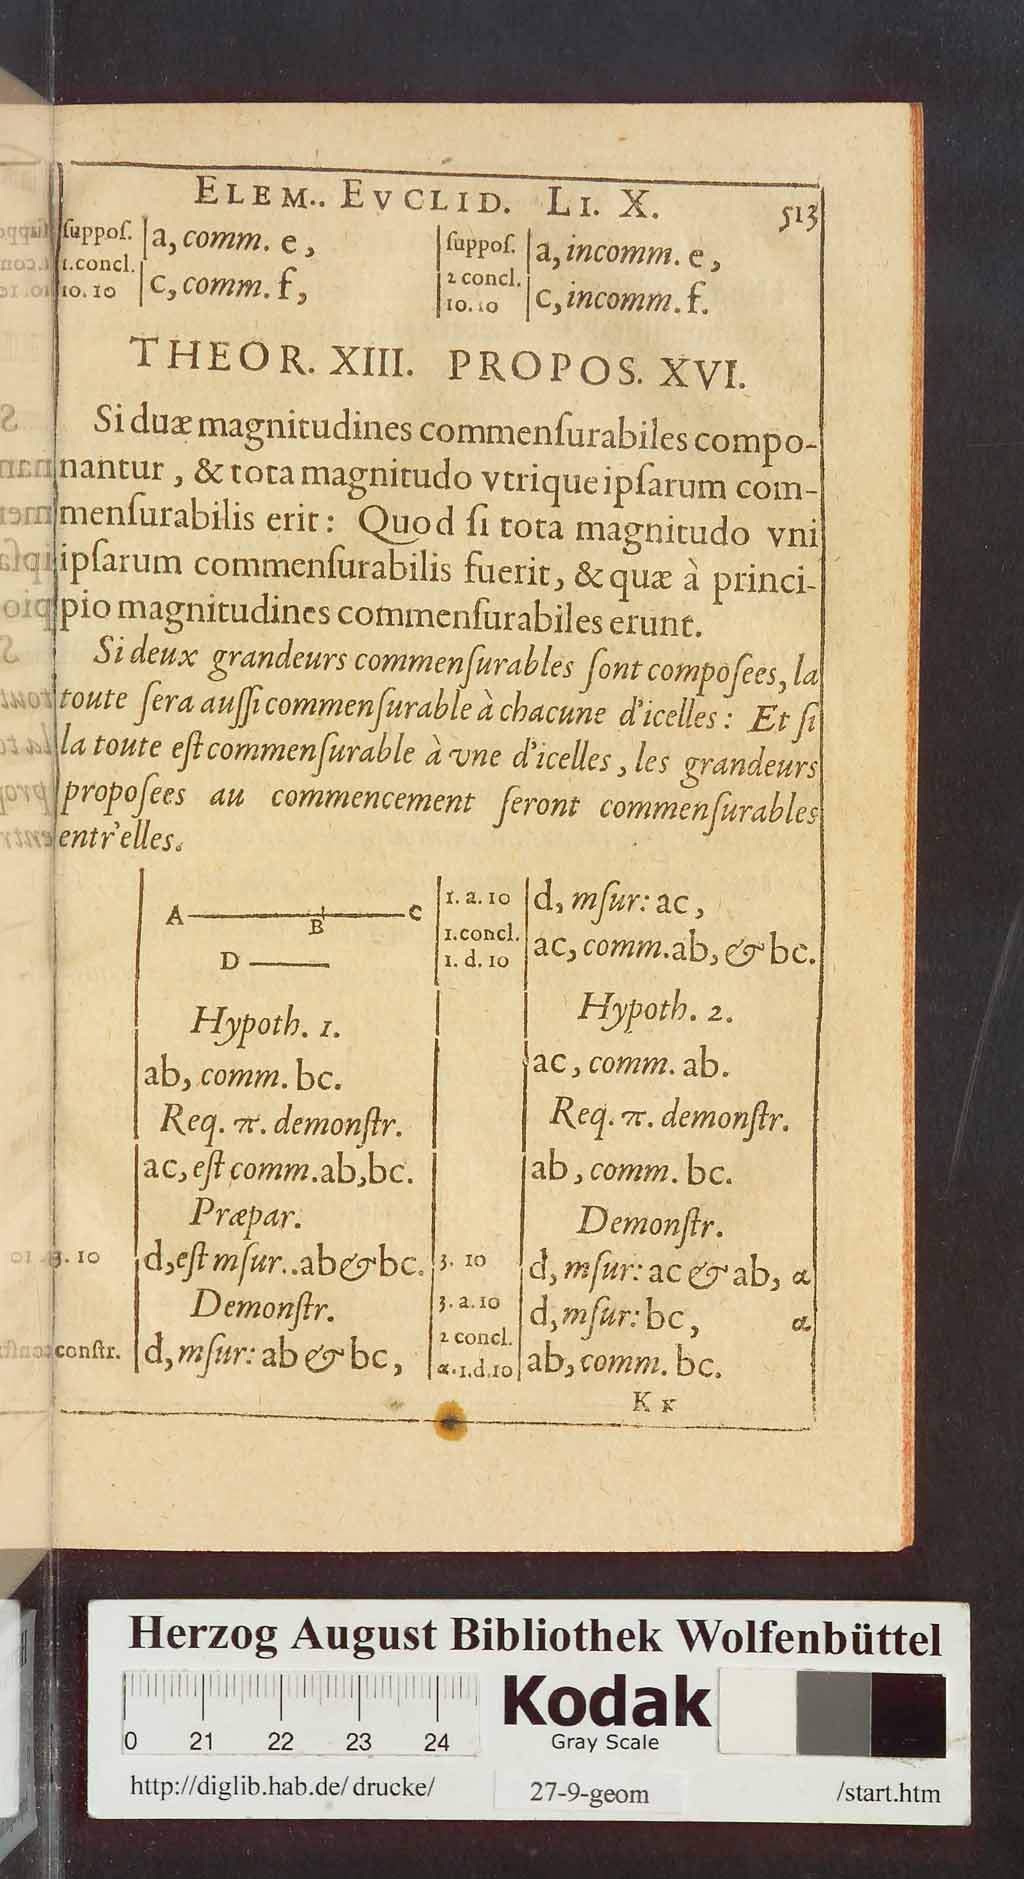 ELEM.. EVCLID. LI. X. 513
suppoſ. | a, comm. e,
1.concl.
10.10 | c, comm. f,
suppoſ. | a, incomm. e,
2 concl.
10.10 | c, incomm. f.
THEOR. XIII. PROPOS. XVI.
Si duæ magnitudines commenſurabiles compo-
nantur, & tota magnitudo vtrique ipſarum com-
menſurabilis erit: Quod ſi tota magnitudo vni
ipſarum commenſurabilis fuerit, & quæ à princi-
pio magnitudines commenſurabiles erunt.
Si deux grandeurs commenſurables ſont compoſees, la
toute ſera auſſi commenſurable à chacune d'icelles: Et ſi
la toute eſt commenſurable à vne d'icelles, les grandeurs
propoſees au commencement ſeront commenſurables
entr'elles.
A B C
D
Hypoth. 1.
ab, comm. bc.
Req. π. demonſtr.
ac, eſt comm. ab, bc.
Præpar.
3. 10 | d, eſt mſur.. ab & bc.
Demonſtr.
conſtr. | d, mſur: ab & bc,
1. a. 10 | d, mſur: ac,
1.concl.
1. d. 10 | ac, comm. ab, & bc.
Hypoth. 2.
ac, comm. ab.
Req. π. demonſtr.
ab, comm. bc.
Demonſtr.
3. 10 | d, mſur: ac & ab, α
3. a. 10 | d, mſur: bc, α
2 concl.
α. 1. d. 10 | ab, comm. bc.
K k
Herzog August Bibliothek Wolfenbüttel
0 21 22 23 24
Kodak
Gray Scale
http://diglib.hab.de/ drucke/ 27-9-geom /start.htm